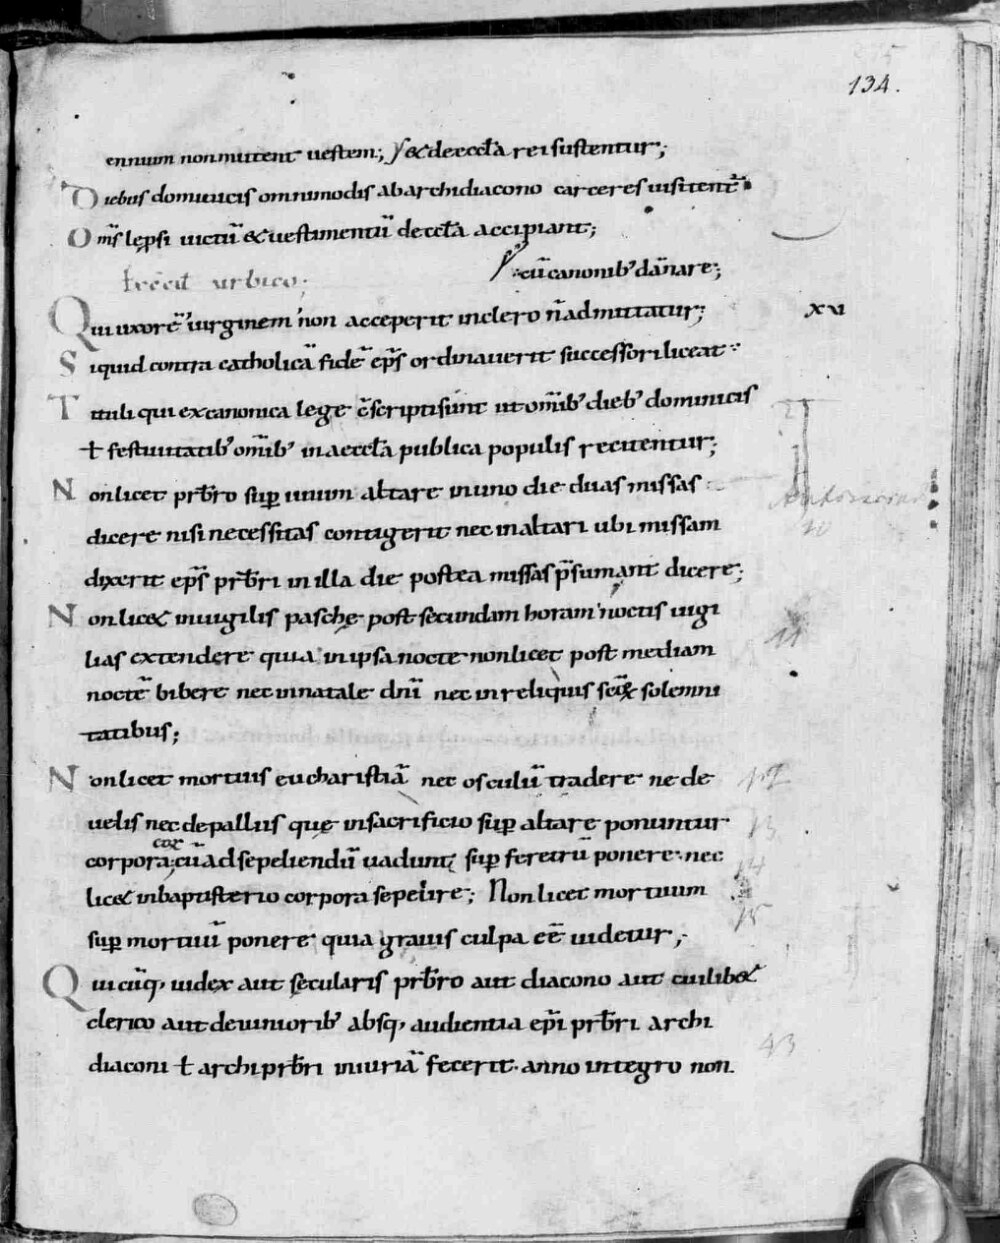 134.
ennium non mutent uestem; / & de eccła rei sustentur;
Diebus dominicis omnimodis ab archidiacono carceres uisitent̄
Om̄s lepsi uictū & uestimentū de eccła accipiant;
/ cū canonib' dānare;
Qui uxorē uirginem non acceperit in clero n̄ admittatur; XVI
Siquid contra catholicā fidē ep̄s ordinauerit successori liceat
Tituli qui ex canonica lege c̄scripti sunt ut om̄ib' dieb' dominicis
ł festiuitatib' om̄ib' in aeccła publica populis recitentur;
Non licet prb̄ro sup unum altare in uno die duas missas
dicere nisi necessitas contigerit nec in altari ubi missam
dixerit ep̄s prb̄ri in illa die postea missas p̄sumant dicere;
Non lic& in uigiliis pasche post secundam horam noctis uigi
lias extendere quia in ipsa nocte non licet post mediam
noctē bibere nec in natale dn̄i nec in reliquis scꝝ solemni
tatibus;
Non licet mortuis eucharistiā nec osculū tradere ne de
uelis nec de palliis que in sacrificio sup altare ponuntur
corpora cū ad sepeliendū uadunt sup feretrū ponere. nec
lic& in baptisterio corpora sepelire; Non licet mortuum
sup mortuū ponere quia grauis culpa eē uidetur;
Quicūq, iudex aut secularis prb̄ro aut diacono aut cuilib&
clerico aut de iuniorib' absq, audientia ep̄i prb̄ri archi
diaconi ł archiprb̄ri iniuriā fecerit. anno integro non